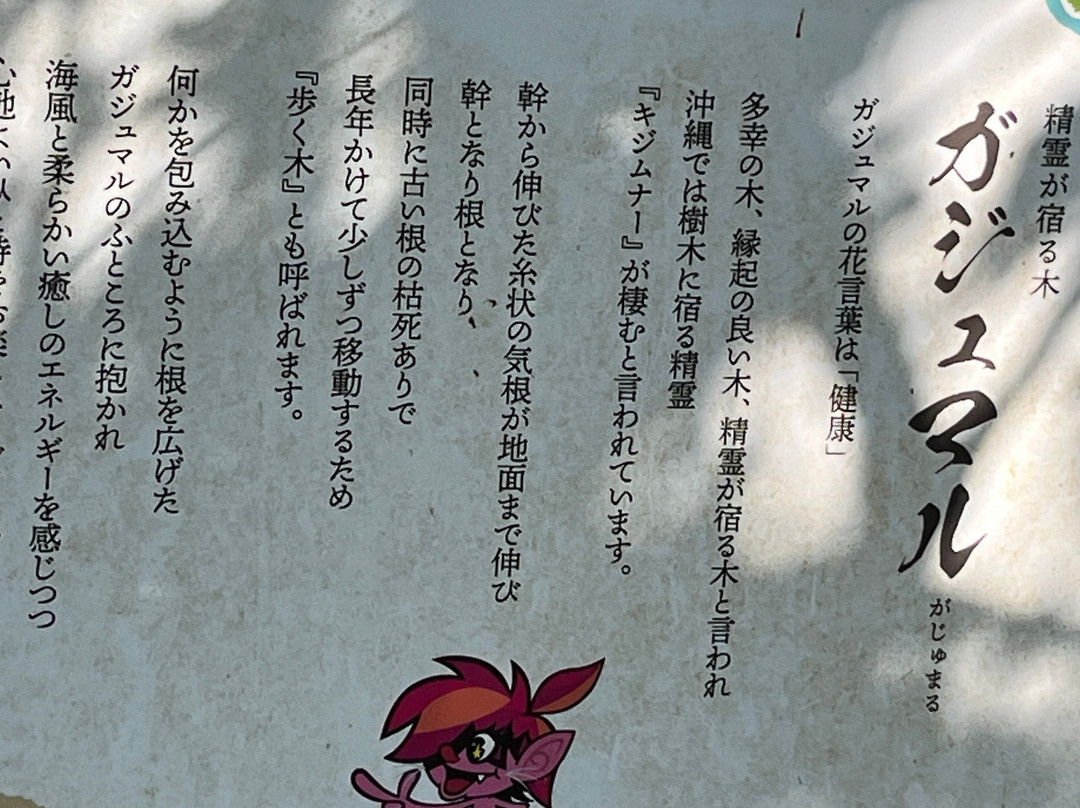 精霊が宿る木
ガジュマル
がじゅまる
ガジュマルの花言葉は「健康」
多幸の木、縁起の良い木、精霊が宿る木と言われ
沖縄では樹木に宿る精霊
『キジムナー』が棲むと言われています。
幹から伸びた糸状の気根が地面まで伸び
幹となり根となり、
同時に古い根の枯死ありで
長年かけて少しずつ移動するため
『歩く木』とも呼ばれます。
何かを包み込むように根を広げた
ガジュマルのふところに抱かれ
海風と柔らかい癒しのエネルギーを感じつつ